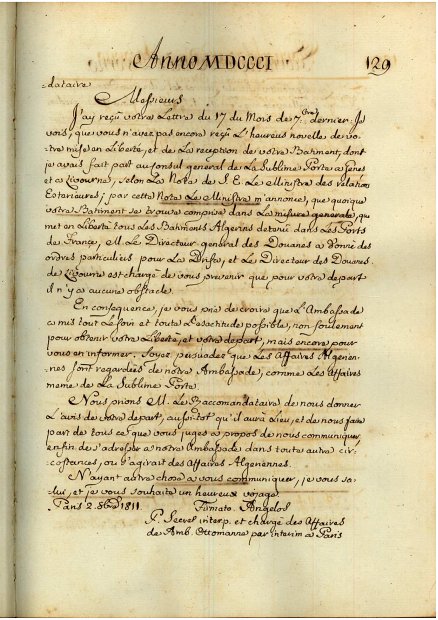 Anno MDCCCI 129
dataire
Messieurs
J'ay reçu votre Lettre du 17 du Mois de 7.bre dernier. Je
vois, que vous n'avez pas encore reçu L'heureus novelle de vo-
tre mise en Liberté, et de La reception de votre Batiment, dont
je avais fait part au Consul general de La Sublime Porte a Genes
et a Livourne, selon La Nota de S. E. Le Ministre des relation
Exterieures; par cette Nota Le Ministre m'annonce, que quoique
votre Batiment se trouve comprise dans La misure generale, qui
met en Liberté tous Les Batiments Algerins detenu dans Les Ports
de France, M. Le Directeur general des Douanes a donné des
ordres particulies pour La Drista, et Le Directeur des Douanes
de Livourne est chargé de vous prevenir que pour votre depart
il n'y a aucune obstacle.
En consequence, je vous prie de croire que L'Ambassade
a mis tout Le soin et toute L'esactitude possible, non soulement
pour obtenir votre Liberté, et votre depart, mais encore pour
vous en informer. Soyez persuadés que Les Affaires Algerien-
nes sont regardées de notre Ambassade, comme Les Affaires
meme de La Sublime Porte.
Nous prions M. Le Raccomandataire de nous donner
L'avis de votre depart, aussitot qu'il aurà Lieu, et de nous faire
part de tous ce que vous juges a propos de nous communiquer,
enfin de s'adresser a notre Ambassade dans toute autre cir-
costances, ou s'agirait des Affaires Algeriennes.
N'ayant autre chose a vous communiquer, je vous sa-
lue, et je vous souhaite un heureux voyage
Paris 2. 8bre 1811. Firmato. Angelos
P. Secret. interp. et charge des Affaires
de Amb. Ottomanne par interim a Paris